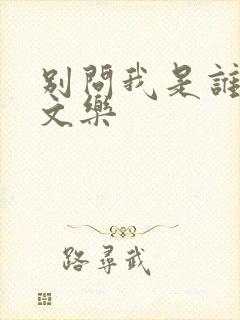 別問我是誰
文樂
路尋武